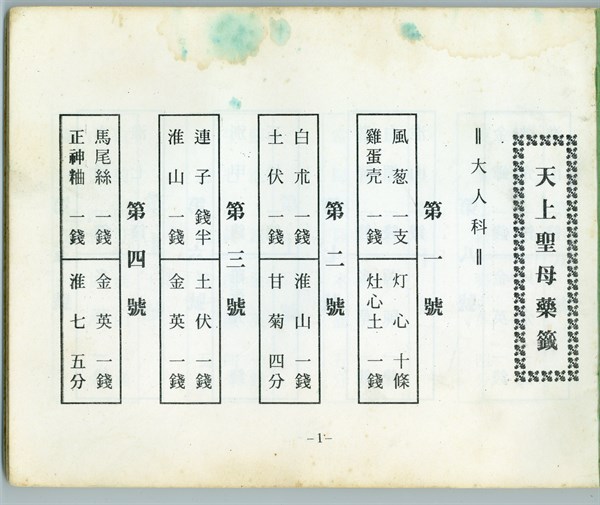 天上聖母藥籤
‖大人科‖
第一號
風葱 一支
灯心 十條
雞蛋壳 一錢
灶心土 一錢
第二號
白朮 一錢
淮山 一錢
土伏 一錢
甘菊 四分
第三號
連子 錢半
土伏 一錢
淮山 一錢
金英 一錢
第四號
馬尾絲 一錢
金英 一錢
正神粬 一錢
淮七 五分
-1-